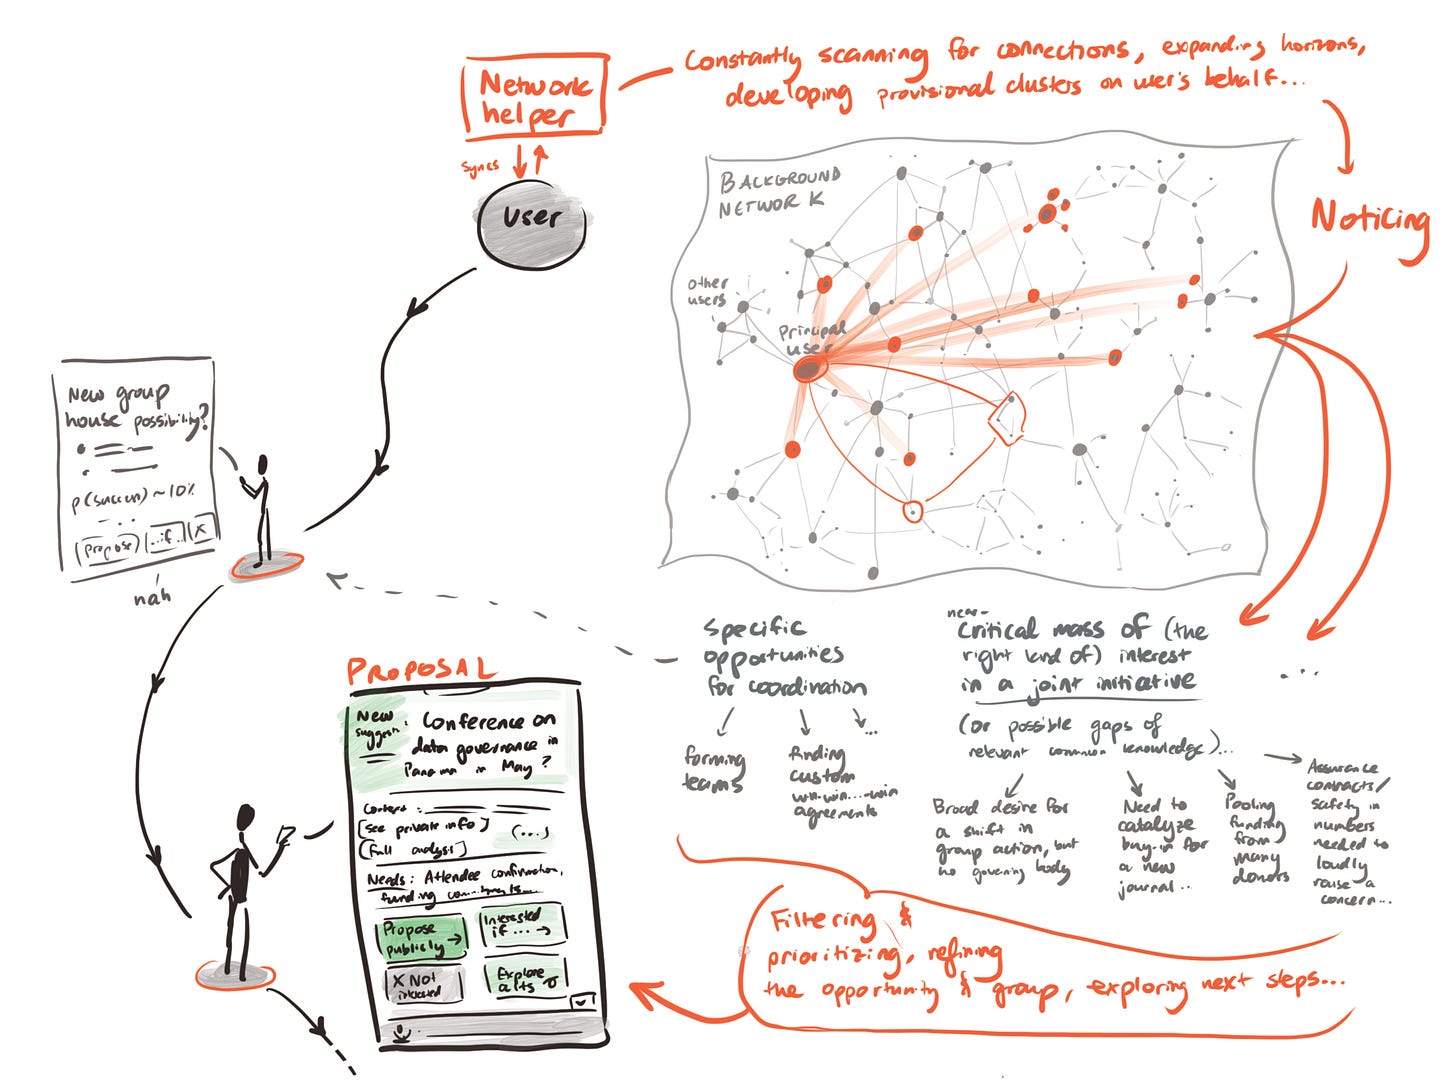 Network
helper
Constantly scanning for connections, expanding horizons,
developing provisional clusters on user's behalf...
syncs
User
BACKGROUND
NETWORK
other
users
Principal
user
Noticing
New group
house possibility?
p(success) ~10%
Propose
...if..
X
nah
Specific
opportunities
for coordination
...
forming
teams
finding
custom
win-win...-win
agreements
near-
Critical mass of (the
right kind of) interest
in a joint initiative
(or possible gaps of
relevant common knowledge)...
...
Broad desire for
a shift in
group action, but
no governing body
Need to
catalyze
buy-in for
a new
journal..
Pooling
funding
from
many
donors
Assurance
contracts/
safety in
numbers
needed to
loudly
raise a
concern...
PROPOSAL
New
suggest.
: Conference on
data governance in
Panama in May?
Context:
[see private info]
(...)
[full analysis]
Needs: Attendee confirmation,
funding commitments...
Propose
publicly →
Interested
if ... →
X Not
interested
Explore
alts
Filtering &
prioritizing, refining
the opportunity & group, exploring next steps...